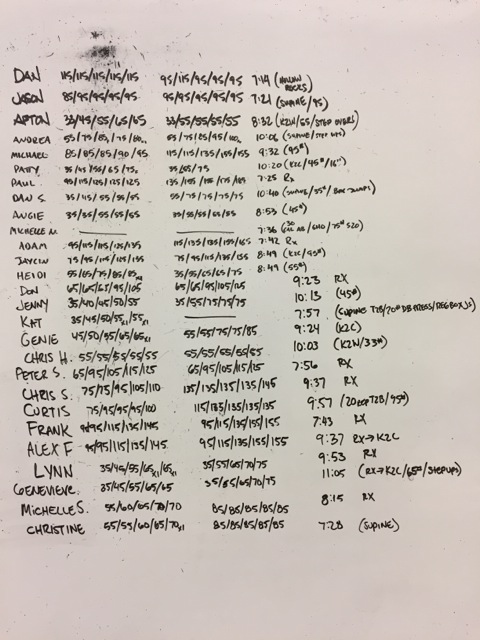 DAN 115/115/115/115/115 95/115/95/95/95 7:14 (HOLLOW ROCKS)
JASON 85/95/95/95/95 95/95/95/95/95 7:21 (SUPINE/95)
33/45/55/65/65 33/55/55/55/55 8:32 (K2N/65/STEP OVERS)
ANDREA 55/75/85/75/80 65/75/85/95/100 10:06 (SUPINE/STEP UPS)
MICHAEL 85/85/85/90/95 115/115/135/155/155 9:32 (95#)
PATTY 35/45/55/65/75 35/65/75 10:20 (K2C/45#/16")
PAUL 95/115/125/125/125 135/155/155/175/185 7:25 RX
DAN S. 35/45/55/55/55 55/75/75/75/75 10:40 (SUPINE/55#/BOX JUMPS)
ANGIE 35/35/55/55/65 35/55/55/65/65 8:53 (45#)
MICHELLE N. 7:36
ADAM 95/115/115/125/135 115/135/135/155/165 7:42 RX
JAYCIN 75/95/115/125/135 75/95/115/135/135 8:49 (K2C/95#)
HEIDI 55/65/75/85/85 35/55/65/65/75 8:49 (55#)
DON 65/65/65/95/105 65/65/95/105/125 9:23 RX
JENNY 35/40/45/50/55 35/55/75/75/75 10:13 (45#)
KAT 35/45/50/55x1/55x1 7:57 (SUPINE T2B/20# DB PRESS/REG BOX JS)
GENIE 45/50/55/65/65x1 55/55/75/75/85 9:24 (K2C)
CHRIS H. 55/55/55/55/55 55/55/55/55/55 10:03 (K2N/33#)
PETER S. 65/95/105/115/125 65/95/105/115/125 7:56 RX
CHRIS S. 75/75/95/105/110 135/135/135/135/145 9:37 RX
CURTIS 75/95/95/95/100 115/135/135/135/135 9:57 (20 REP T2B/95#)
FRANK 95/95/115/135/145 95/115/135/155/155 7:43 RX
ALEX F 95/95/115/135/145 95/115/135/155/155 9:37 RX→K2C
LYNN 35/45/55/65x1/65x1 35/55/60/70/75 9:53 RX
GENEVIEVE 35/45/55/65/65 35/55/65/70/75 11:05 (RX→K2C/65#/STEPUPS)
MICHELLE S. 55/60/65/70/70 85/85/85/85/85 8:15 RX
CHRISTINE 55/55/60/65/70x1 85/85/85/85/85 7:28 (SUPINE)